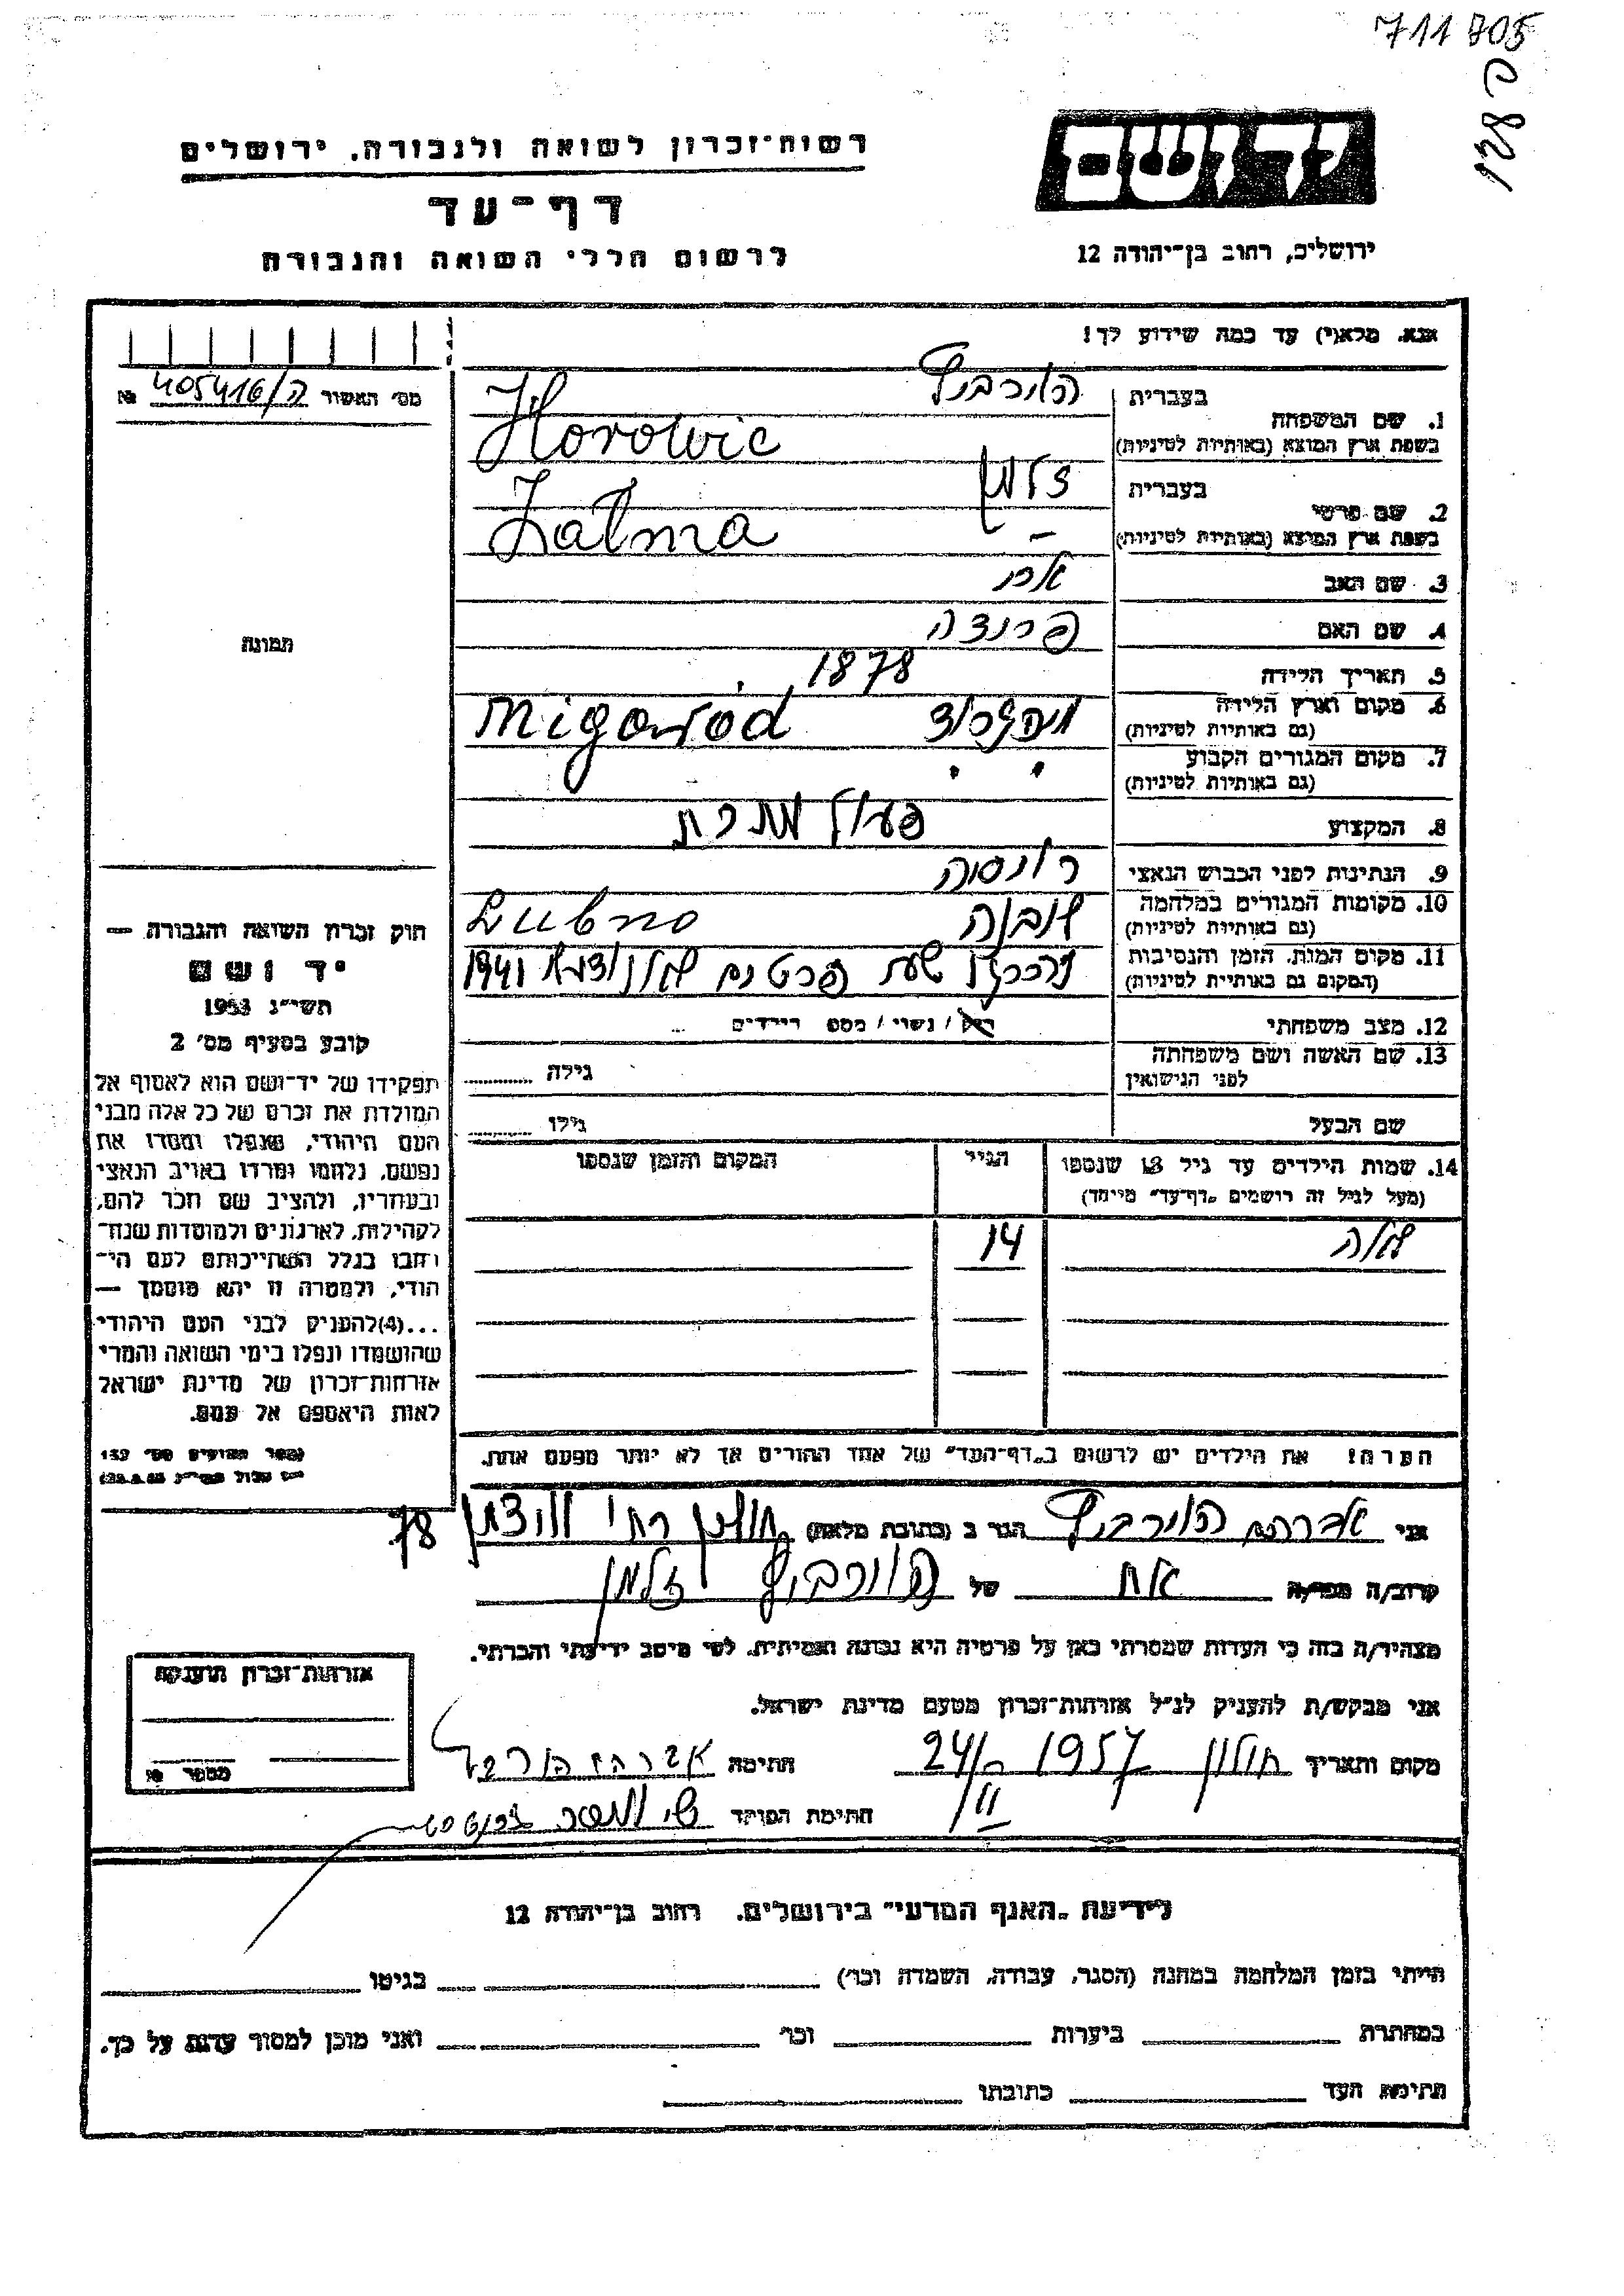 711805
ה 128
רשות-זכרון לשואה ולגבורה, ירושלים
יד ושם
דף-עד
לרשום חללי השואה והגבורה
ירושלים, רחוב בן-יהודה 12
אנא, מלא(י) עד כמה שידוע לך!
מס׳ האשור ה/405416 №
1. שם המשפחה
בעברית הורביץ
בשפת ארץ המוצא (באותיות לטיניות) Horowic
2. שם פרטי
בעברית זלמן
בשפת ארץ המוצא (באותיות לטיניות) Zalma
3. שם האב
4. שם האם
5. תאריך הלידה 1878
6. מקום וארץ הלידה
(גם באותיות לטיניות) Migorod
7. מקום המגורים הקבוע
(גם באותיות לטיניות)
8. המקצוע פועל מתכת
9. הנתינות לפני הכבוש הנאצי
10. מקומות המגורים במלחמה
(גם באותיות לטיניות) לובנה Lubno
11. מקום המות, הזמן והנסיבות
(המקום גם באותיית לטיניות) 1941
12. מצב משפחתי רווק / נשוי / מספר הילדים
13. שם האשה ושם משפחתה
לפני הנישואין גילה
שם הבעל גילו
תמונה
חוק זכרון השואה והגבורה —
יד ושם
תשי״ג 1953
קובע בסעיף מס׳ 2
תפקידו של יד-ושם הוא לאסוף אל
המולדת את זכרם של כל אלה מבני
העם היהודי, שנפלו ומסרו את
נפשם, נלחמו ומרדו באויב הנאצי
ובעוזריו, ולהציב שם וזכר להם,
לקהילות, לארגונים ולמוסדות שנח-
רבו בגלל השתייכותם לעם הי-
הודי, ולמטרה זו יהא מוסמך —
...(4)להעניק לבני העם היהודי
שהושמדו ונפלו בימי השואה והמרי
אזרחות-זכרון של מדינת ישראל
לאות היאספם אל עמם.
14. שמות הילדים עד גיל 18 שנספו
(מעל לגיל זה רושמים „דף-עד״ מיוחד)
הגיל
המקום והזמן שנספו
14
הערה! את הילדים יש לרשום ב„דף-העד״ של אחד ההורים אך לא יותר מפעם אחת.
אני אברהם הורביץ הגר ב (כתובת מלאה) חולון 78
קרוב/ה מכר/ה אח של הורביץ זלמן
מצהיר/ה בזה כי העדות שמסרתי כאן על פרטיה היא נכונה ואמיתית, לפי מיטב ידיעתי והכרתי.
אני מבקש/ת להעניק לנ״ל אזרחות-זכרון מטעם מדינת ישראל.
מקום ותאריך חולון 1957 24/II חתימה אברהם הורביץ
חתימת הפוקד
אזרחות-זכרון הוענקה
מספר №
לידיעת „האגף המדעי״ בירושלים, רחוב בן-יהודה 12
הייתי בזמן המלחמה במחנה (הסגר, עבודה, השמדה וכו׳) בגיטו
במחתרת ביערות וכו׳ ואני מוכן למסור עדות על כך.
חתימת העד כתובתו